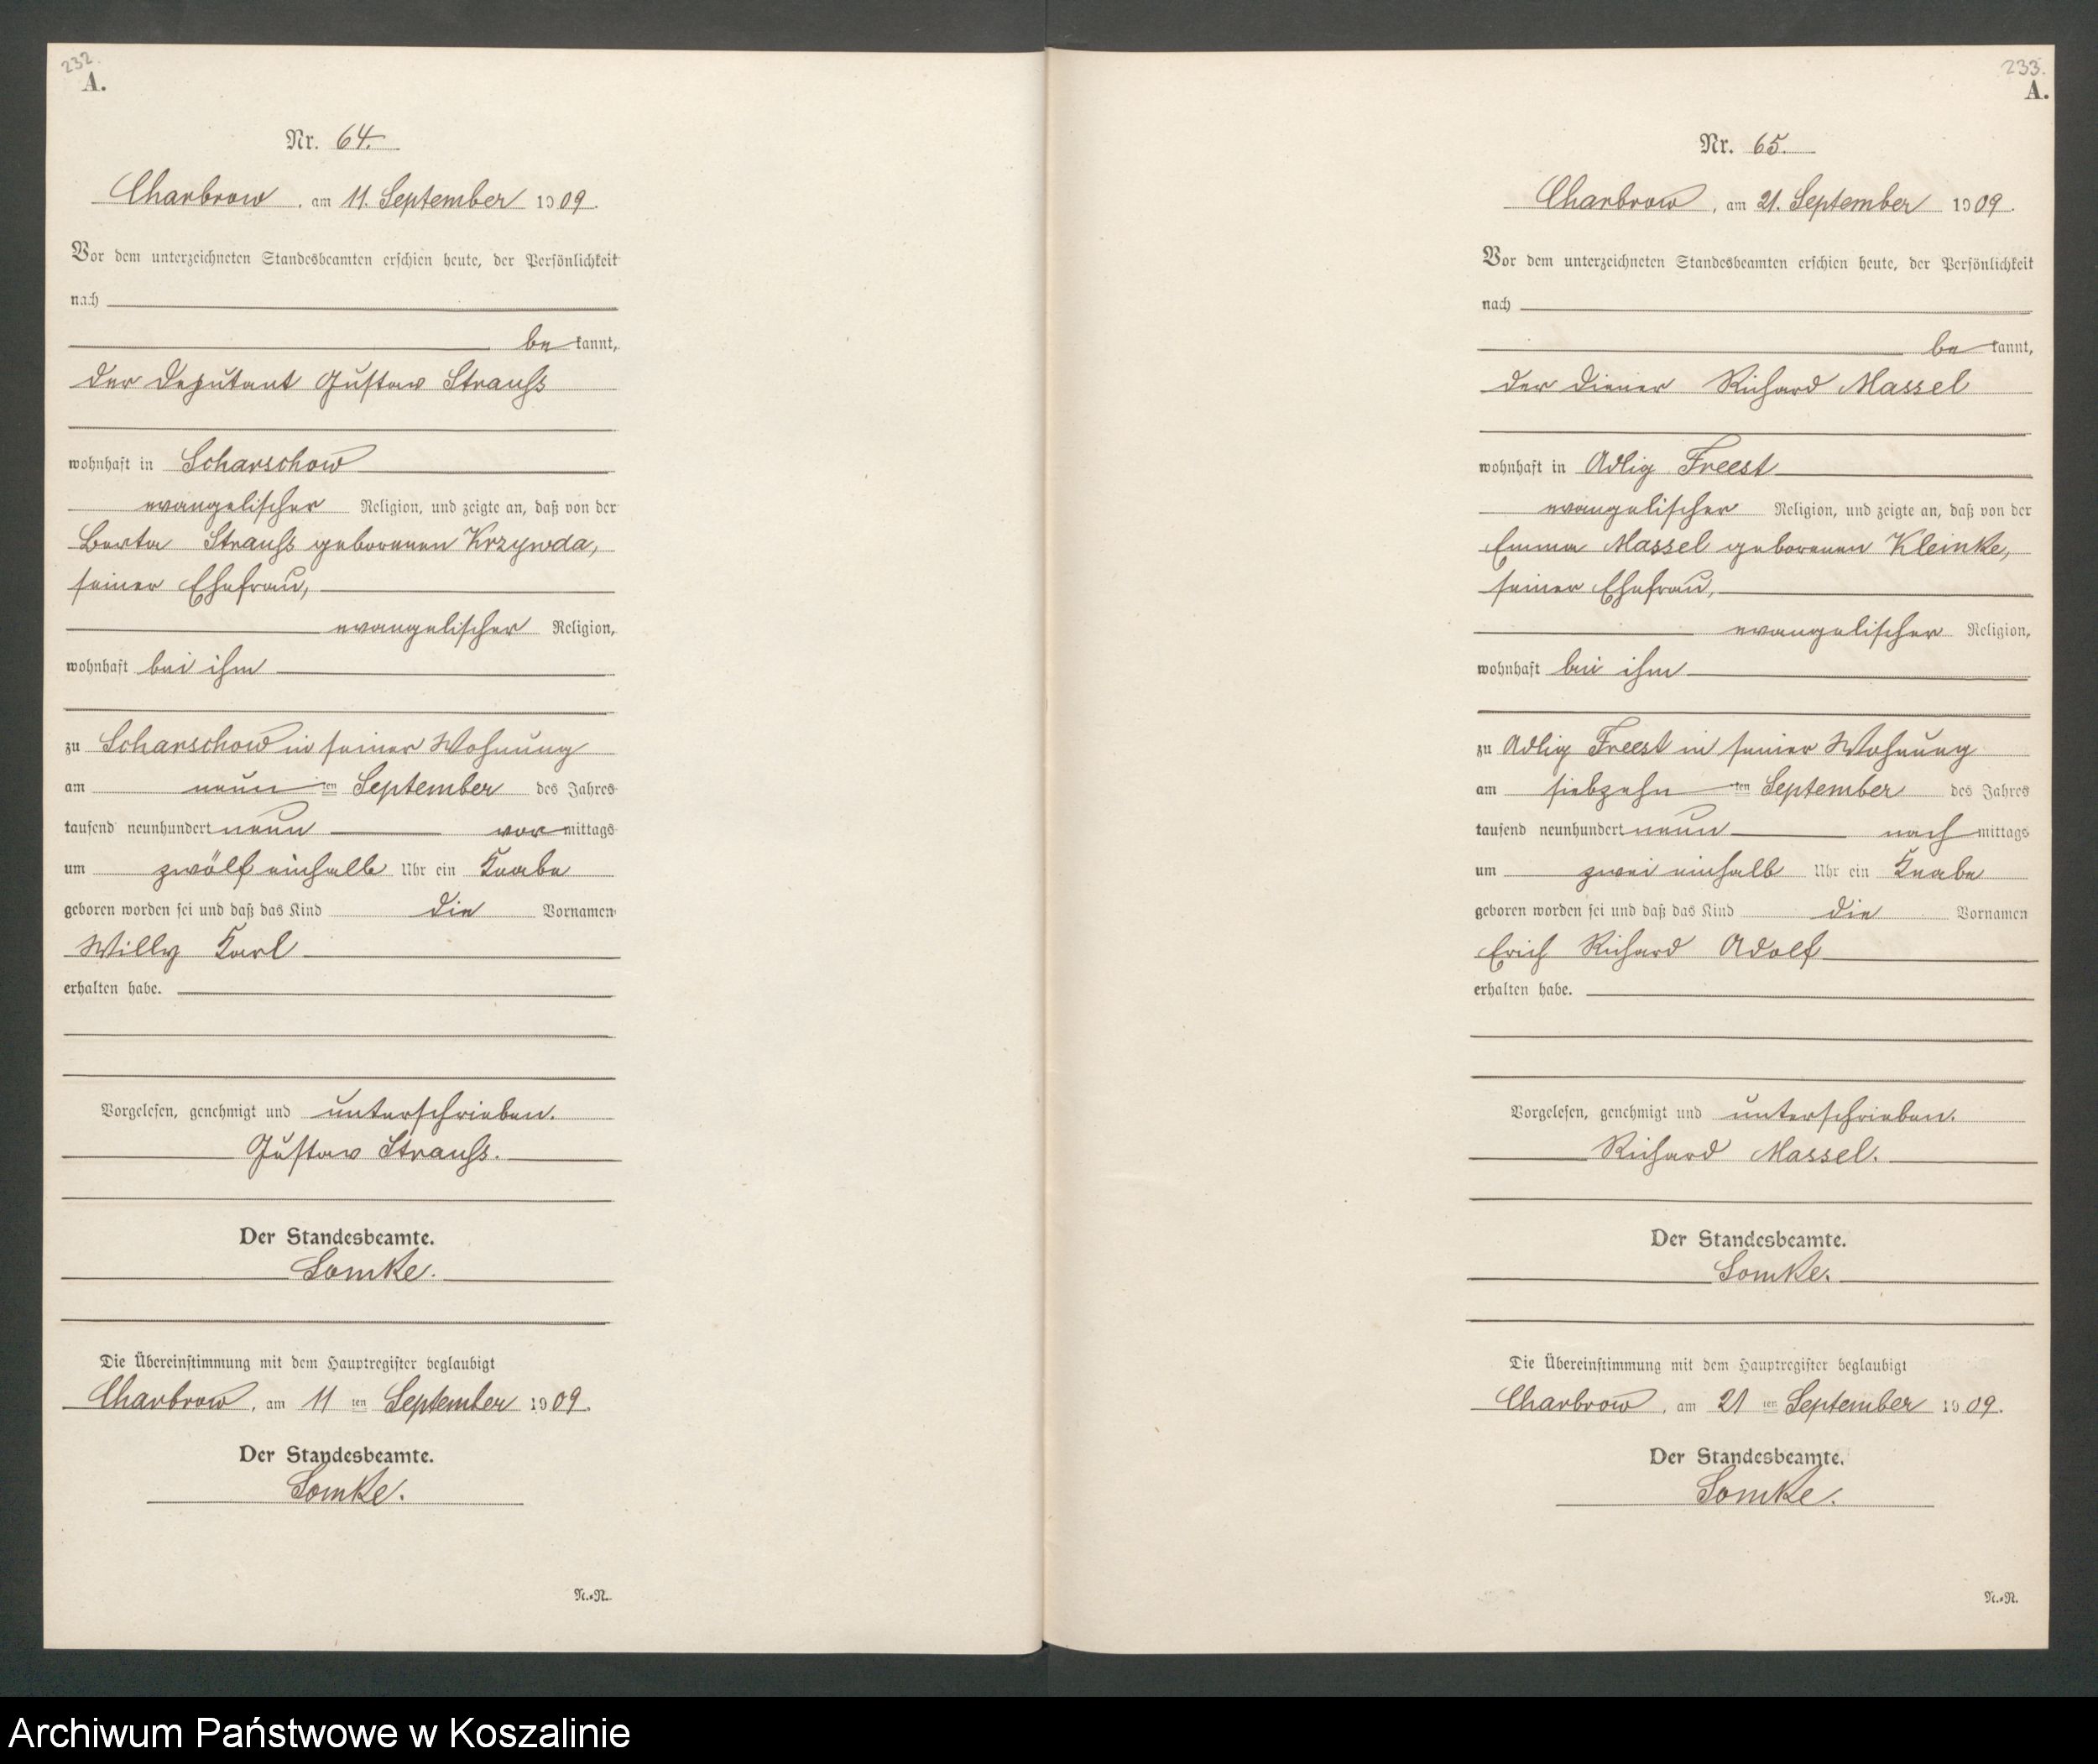 232.
A.
Nr. 64.
Charbrow, am 11. September 1909.
Vor dem unterzeichneten Standesbeamten erschien heute, der Persönlichkeit
nach
be kannt,
der Deputant Gustav Strauß
wohnhaft in Scharschow
evangelischer Religion, und zeigte an, daß von der
Berta Strauß geborenen Krzywda,
seiner Ehefrau,
evangelischer Religion,
wohnhaft bei ihm
zu Scharschow in seiner Wohnung
am neun ten September des Jahres
tausend neunhundert neun vor mittags
um zwölf einhalb Uhr ein Knabe
geboren worden sei und daß das Kind die Vornamen
Willy Karl
erhalten habe.
Vorgelesen, genehmigt und unterschrieben.
Gustav Strauß.
Der Standesbeamte.
Somke.
Die Übereinstimmung mit dem Hauptregister beglaubigt
Charbrow, am 11 ten September 1909.
Der Standesbeamte.
Somke.
N.=N.
233.
A.
Nr. 65.
Charbrow, am 21. September 1909.
Vor dem unterzeichneten Standesbeamten erschien heute, der Persönlichkeit
nach
be kannt,
der Diener Richard Massel
wohnhaft in Adlig Freest
evangelischer Religion, und zeigte an, daß von der
Emma Massel geborenen Kleinke,
seiner Ehefrau,
evangelischer Religion,
wohnhaft bei ihm
zu Adlig Freest in seiner Wohnung
am siebzehn ten September des Jahres
tausend neunhundert neun nach mittags
um zwei einhalb Uhr ein Knabe
geboren worden sei und daß das Kind die Vornamen
Erich Richard Adolf
erhalten habe.
Vorgelesen, genehmigt und unterschrieben.
Richard Massel.
Der Standesbeamte.
Somke.
Die Übereinstimmung mit dem Hauptregister beglaubigt
Charbrow, am 21 ten September 1909.
Der Standesbeamte.
Somke.
N.=N.
Archiwum Państwowe w Koszalinie